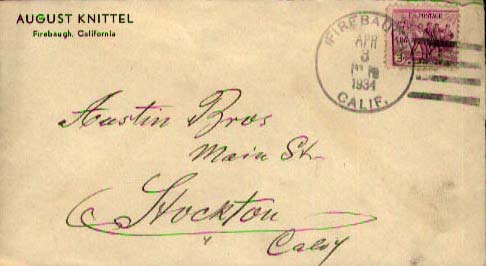 AUGUST KNITTEL
Firebaugh, California
FIREBAU
APR
3
1934
CALIF.
U.S. POSTAGE
3¢
Austin Bros
Main St.
Stockton
" Calif